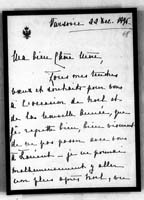 Varsovie 22 Dec. 1895.
Ma bien chère Mimi,
Tous mes tendres
vœux et souhaits pour vous
à l'occasion de Noël et
de la nouvelle Année, que
je regrette bien, bien vivement
de ne pas passer avec vous
— je ne pouvais
malheureusement y aller
non plus après Noël, vu